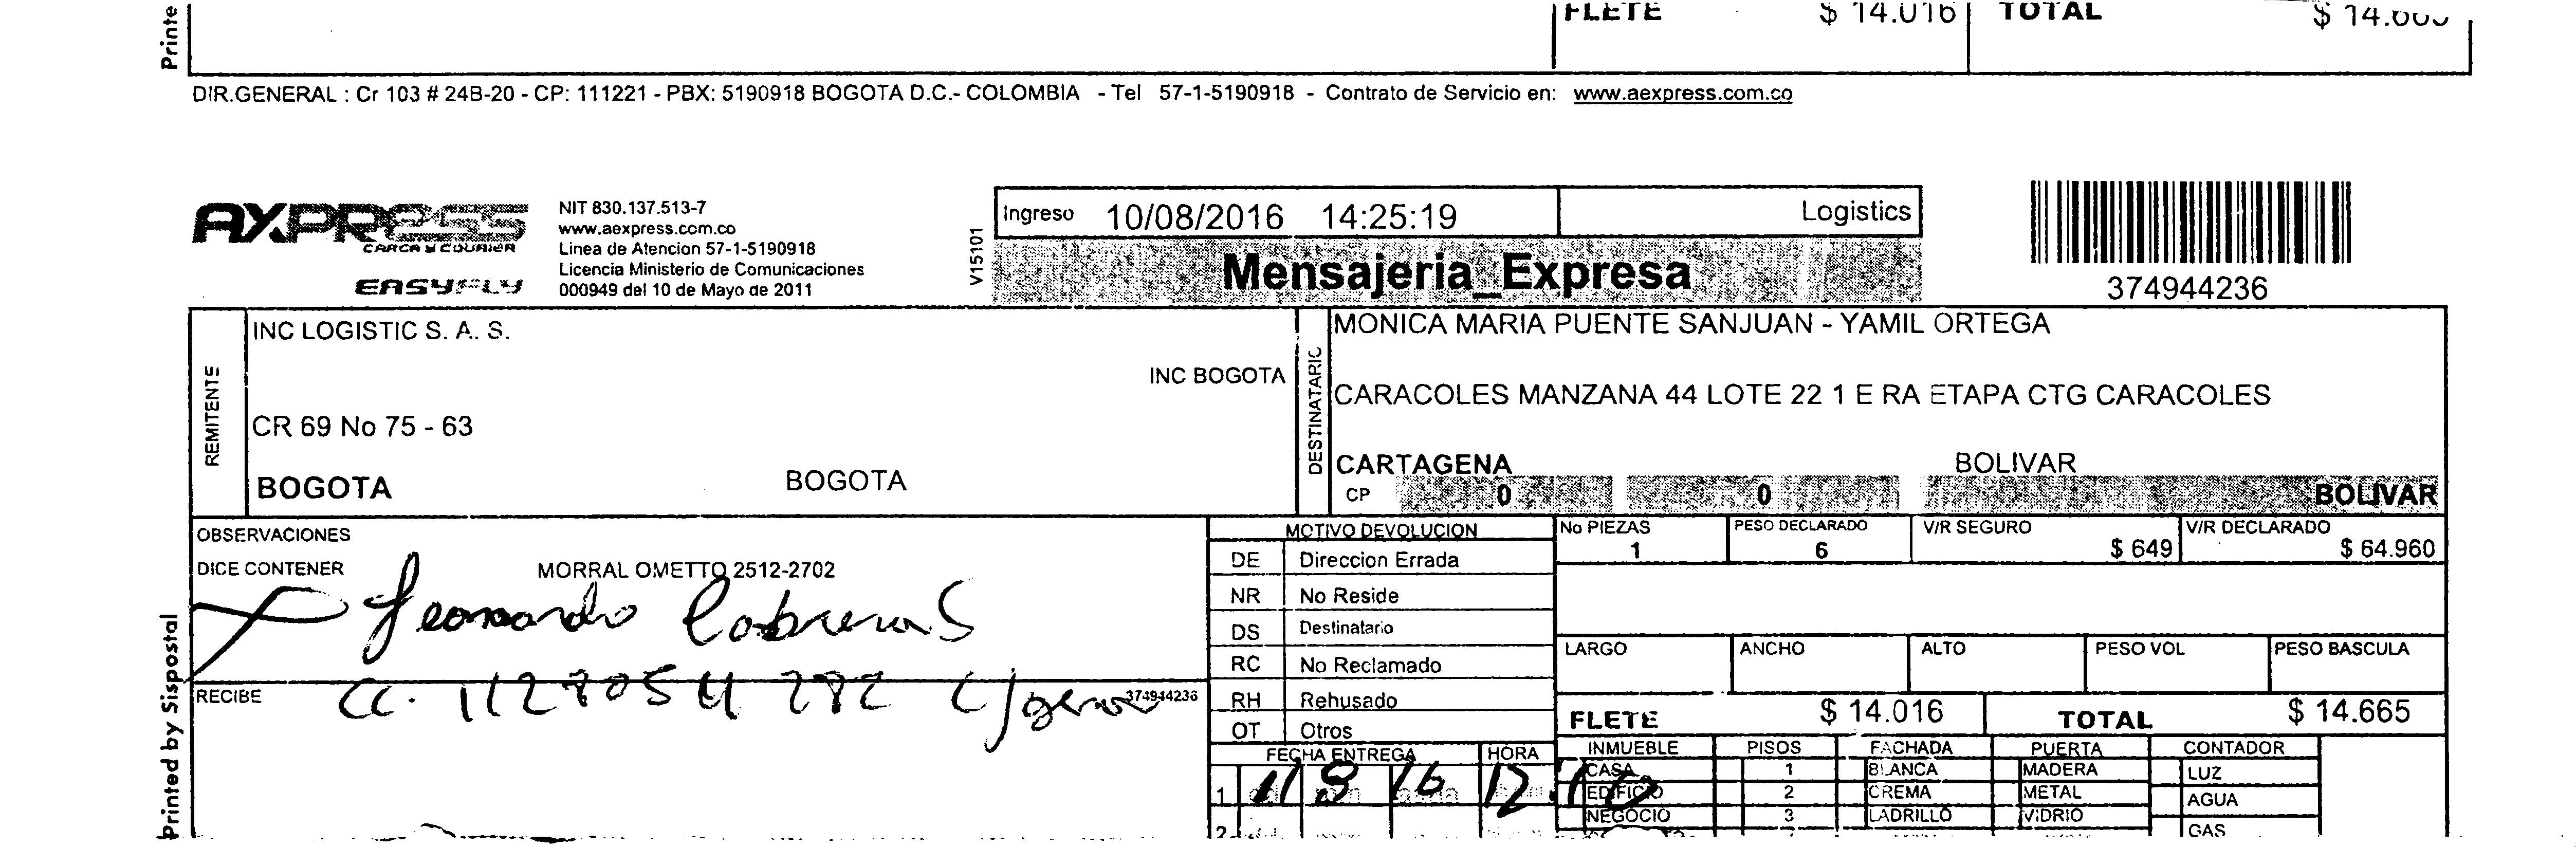 Printe
FLETE $ 14.016 TOTAL $ 14.665
DIR.GENERAL : Cr 103 # 24B-20 - CP: 111221 - PBX: 5190918 BOGOTA D.C.- COLOMBIA - Tel 57-1-5190918 - Contrato de Servicio en: www.aexpress.com.co
AXPRESS
CARGA Y COURIER
EASYFLY
NIT 830.137.513-7
www.aexpress.com.co
Linea de Atencion 57-1-5190918
Licencia Ministerio de Comunicaciones
000949 del 10 de Mayo de 2011
V15101
Ingreso 10/08/2016 14:25:19 Logistics
Mensajeria_Expresa
374944236
REMITENTE
INC LOGISTIC S. A. S.
INC BOGOTA
CR 69 No 75 - 63
BOGOTA BOGOTA
DESTINATARIO
MONICA MARIA PUENTE SANJUAN - YAMIL ORTEGA
CARACOLES MANZANA 44 LOTE 22 1 E RA ETAPA CTG CARACOLES
CARTAGENA BOLIVAR
CP 0 0 BOLIVAR
OBSERVACIONES
DICE CONTENER MORRAL OMETTO 2512-2702
Leonardo Cabreras
RECIBE CC. 1128054 282 374944236
Printed by Sispostal
MOTIVO DEVOLUCION
DE Direccion Errada
NR No Reside
DS Destinatario
RC No Reclamado
RH Rehusado
OT Otros
FECHA ENTREGA HORA
1 11 8 16 12:10
2
No PIEZAS PESO DECLARADO V/R SEGURO V/R DECLARADO
1 6 $ 649 $ 64.960
LARGO ANCHO ALTO PESO VOL PESO BASCULA
FLETE $ 14.016 TOTAL $ 14.665
INMUEBLE PISOS FACHADA PUERTA CONTADOR
CASA 1 BLANCA MADERA LUZ
EDIFICIO 2 CREMA METAL AGUA
NEGOCIO 3 LADRILLO VIDRIO GAS